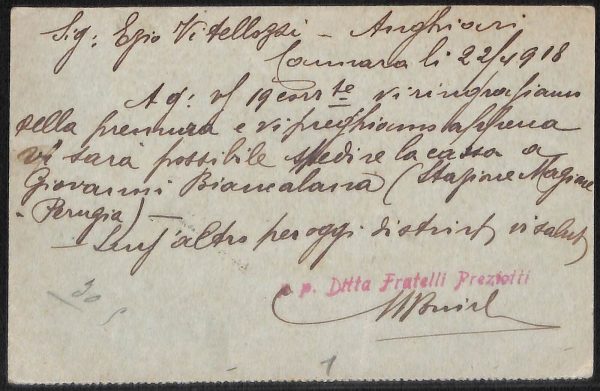 Sig: Ezio Vitellozzi - Anghiari
Cannara li 22/4 918
A g: vs 19 corrte vi ringraziamo
della premura e vi preghiamo appena
vi sarà possibile spedire la cassa a
Giovanni Biancalana (Stazione Magione
- Perugia) -
Senz'altro per oggi distinti vi salut
p. Ditta Fratelli Preziotti
30
1